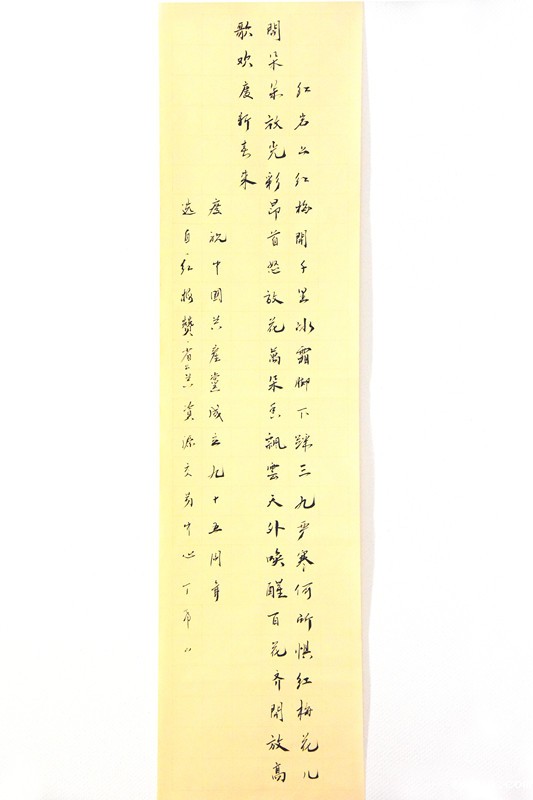 红岩上红梅開千里冰霜脚下踩三九严寒何所惧红梅花儿
開朵朵放光彩昂首怒放花萬朵香飄雲天外唤醒百花齐開放高
歌欢慶新春来
慶祝中國共產黨成立九十五周年
选自红梅赞省公共資源交易中心丁